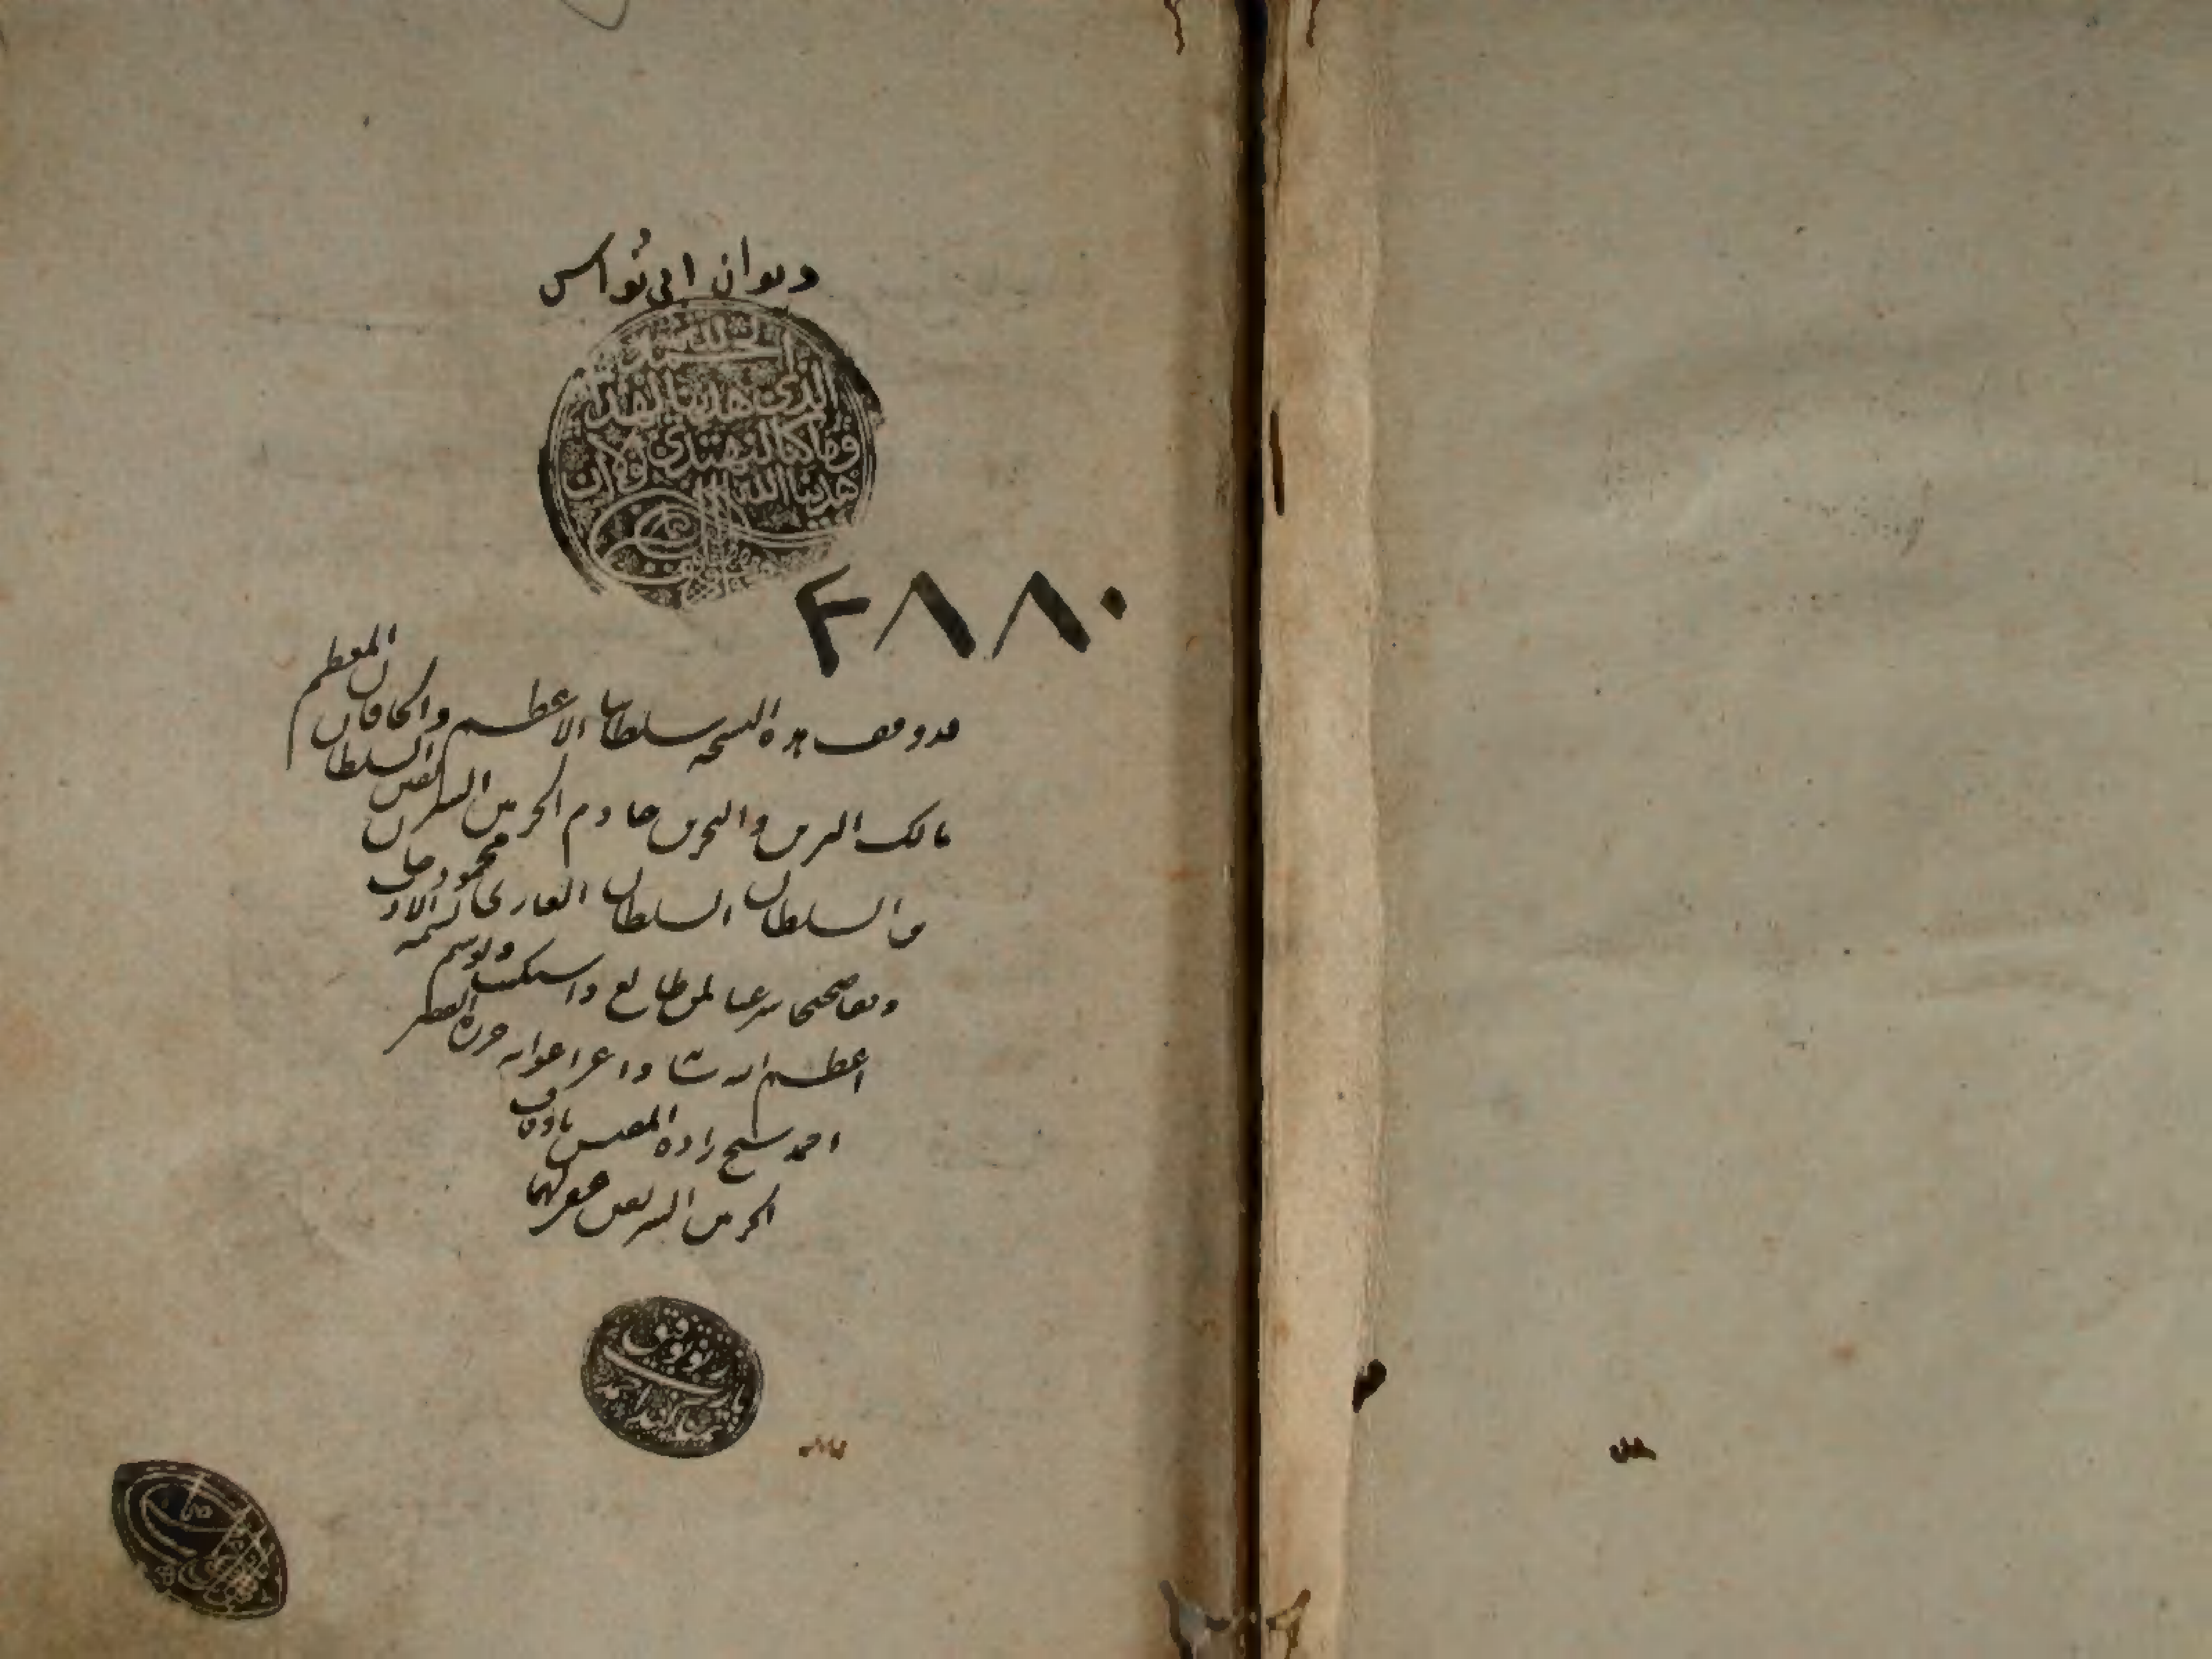 ديوان ابي نُواس
الحمد لله
الذي هدينا لهذا
وما كنا لنهتدي لولا ان
هدينا الله
٣٨٨٠
قد وقف هذه النسخة سلطاننا الاعظم والخاقان المعظم
مالك البرين والبحرين خادم الحرمين الشريفين السلطان
بن السلطان السلطان الغازي محمود خان
وقفا صحيحا شرعيا لمن طالع
اعظم الله
احمد شيخ زاده المفتش باوقاف
الحرمين الشريفين غفر لهما